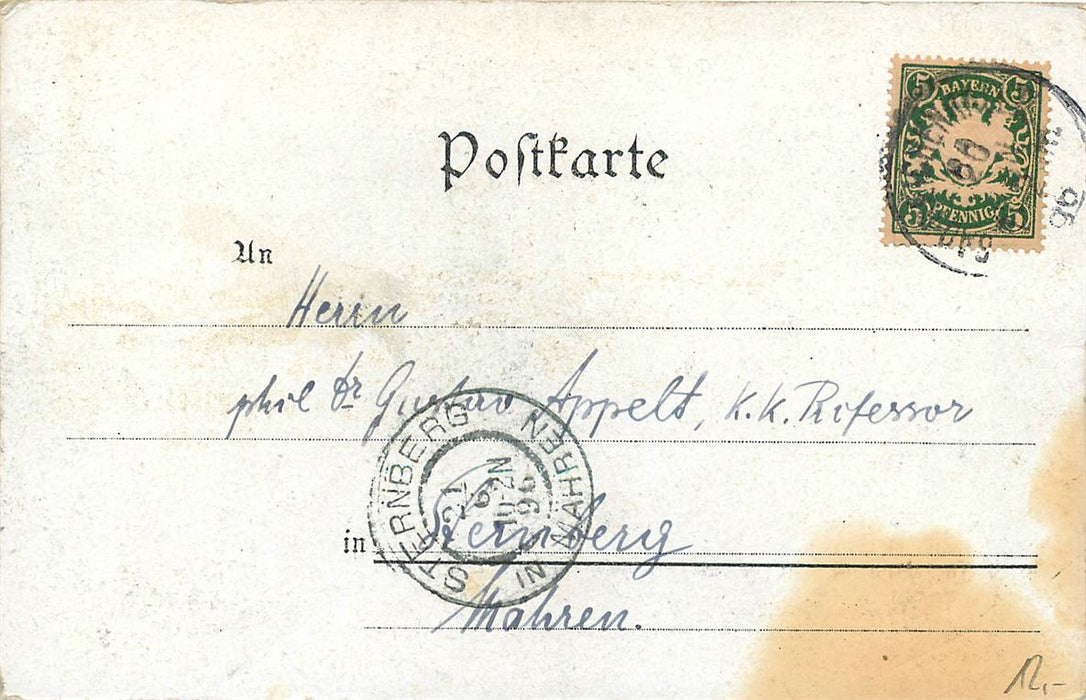 Postkarte
5 BAYERN 5
5 PFENNIG 5
An
Herrn
phil Dr Gustav Appelt, K. K. Professor
in Sternberg
Mähren.
STERNBERG IN MÄHREN
21
96
12,-